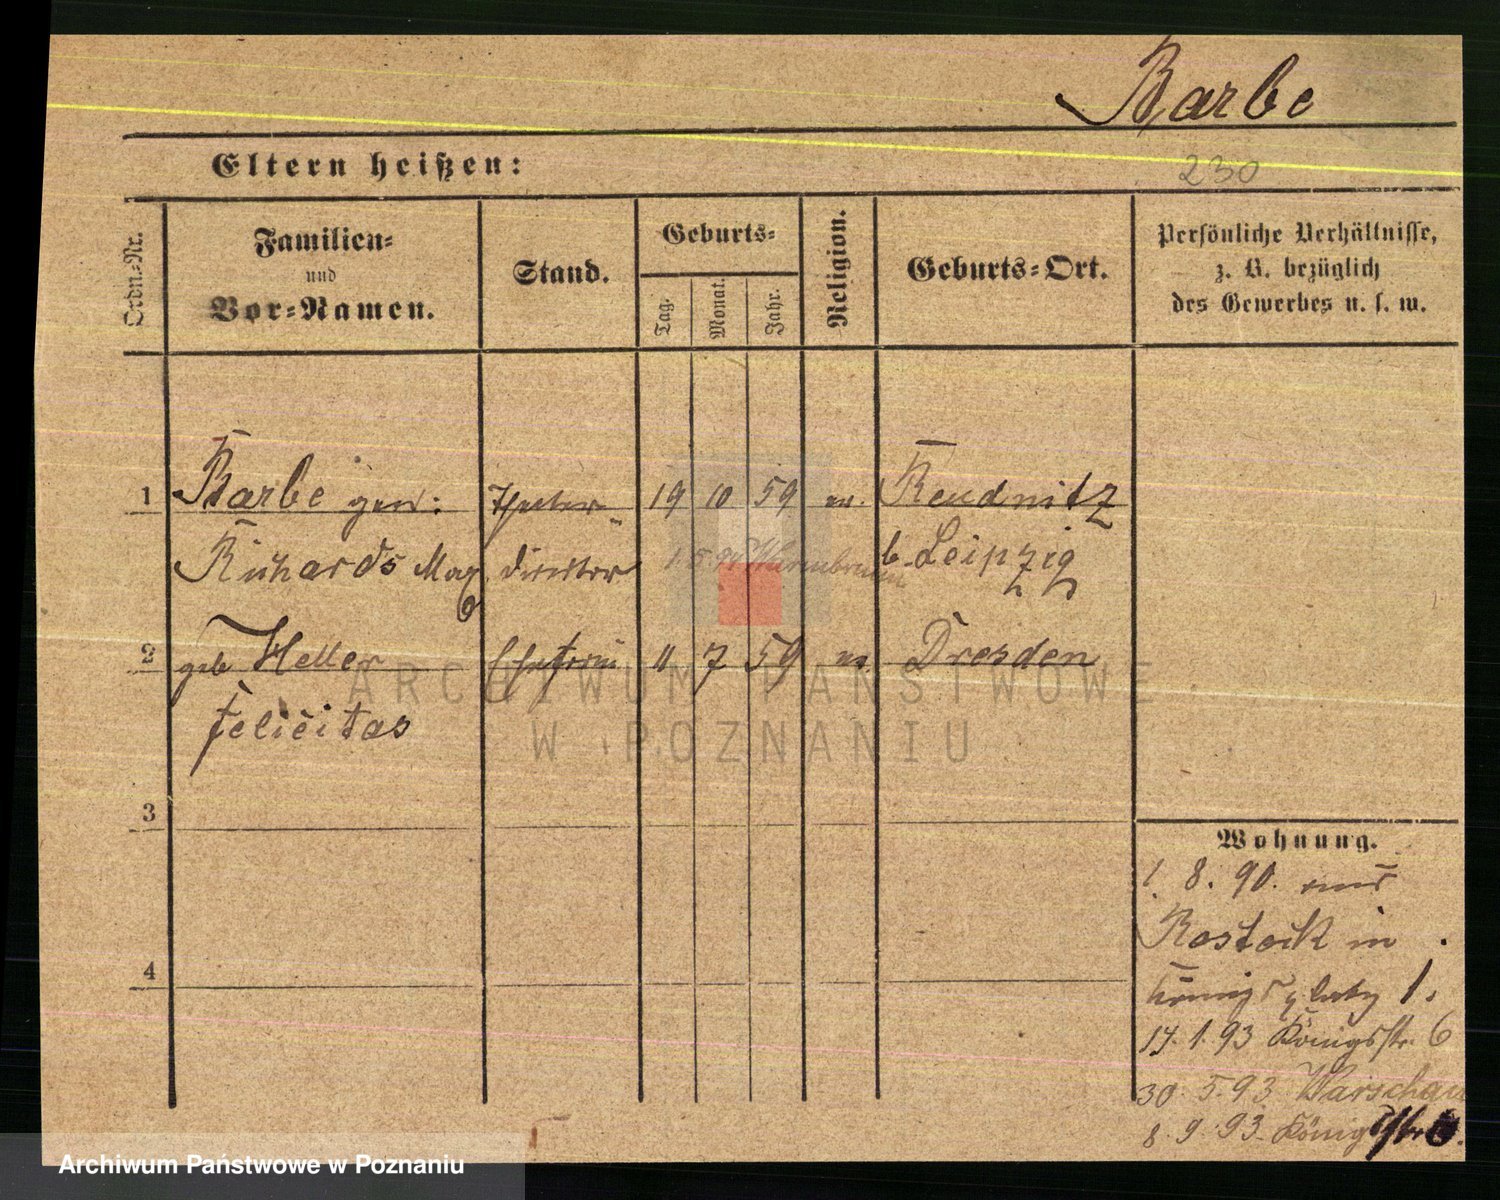 Barbe
Eltern heißen:
230
Ordn.=Nr.
Familien=
und
Vor=Namen.
Stand.
Geburts=
Tag.
Monat.
Jahr.
Religion.
Geburts=Ort.
Persönliche Verhältnisse,
z. B. bezüglich
des Gewerbes u. s. w.
1 Barbe gen: Theater= 19 10 59 ev. Reudnitz
Richards Max direktor b. Leipzig
1 5 94 Warmbrunn
2 geb Heller Ehefrau 11 7 59 ev Dresden
Felicitas
3
4
Wohnung.
1. 8. 90. aus
Rostock in
Königsplatz 1.
17. 1. 93 Königsstr. 6
30. 5. 93 Warschau
8. 9. 93. Königsstr 6.
ARCHIWUM PAŃSTWOWE
W POZNANIU
Archiwum Państwowe w Poznaniu